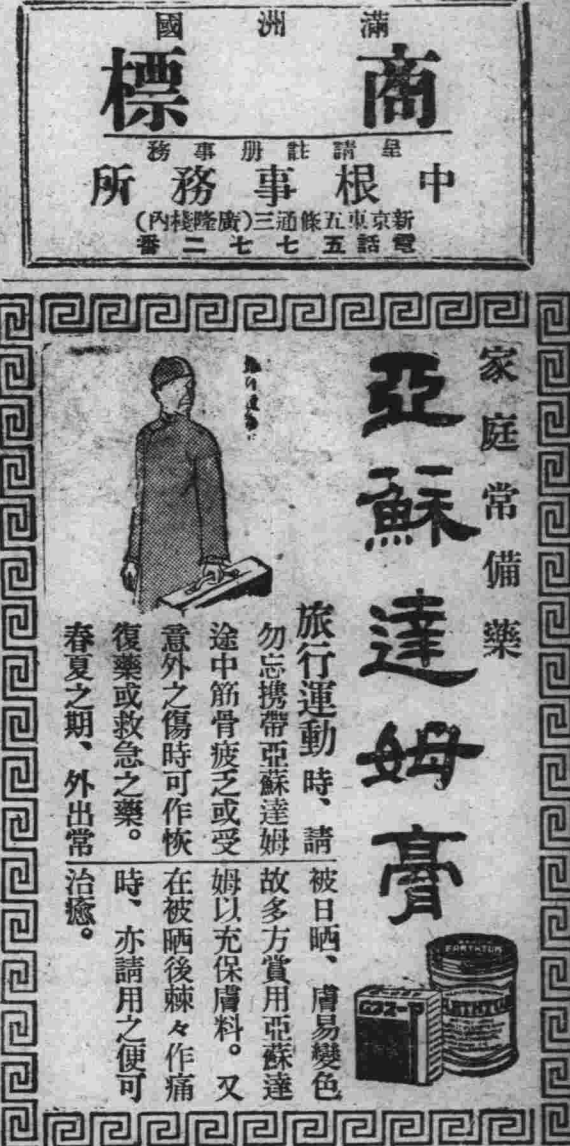 滿洲國
商標
呈請註册事務
中根事務所
新京東五條通三(廣隆棧內)
電話五七七二番
家庭常備藥
亞蘇達姆膏
旅行運動時、請
勿忘携帶亞蘇達姆
途中筋骨疲乏或受
意外之傷時可作恢
復藥或救急之藥。
春夏之期、外出常
被日晒、膚易變色
故多方賞用亞蘇達
姆以充保膚料。又
在被晒後棘々作痛
時、亦請用之便可
治癒。